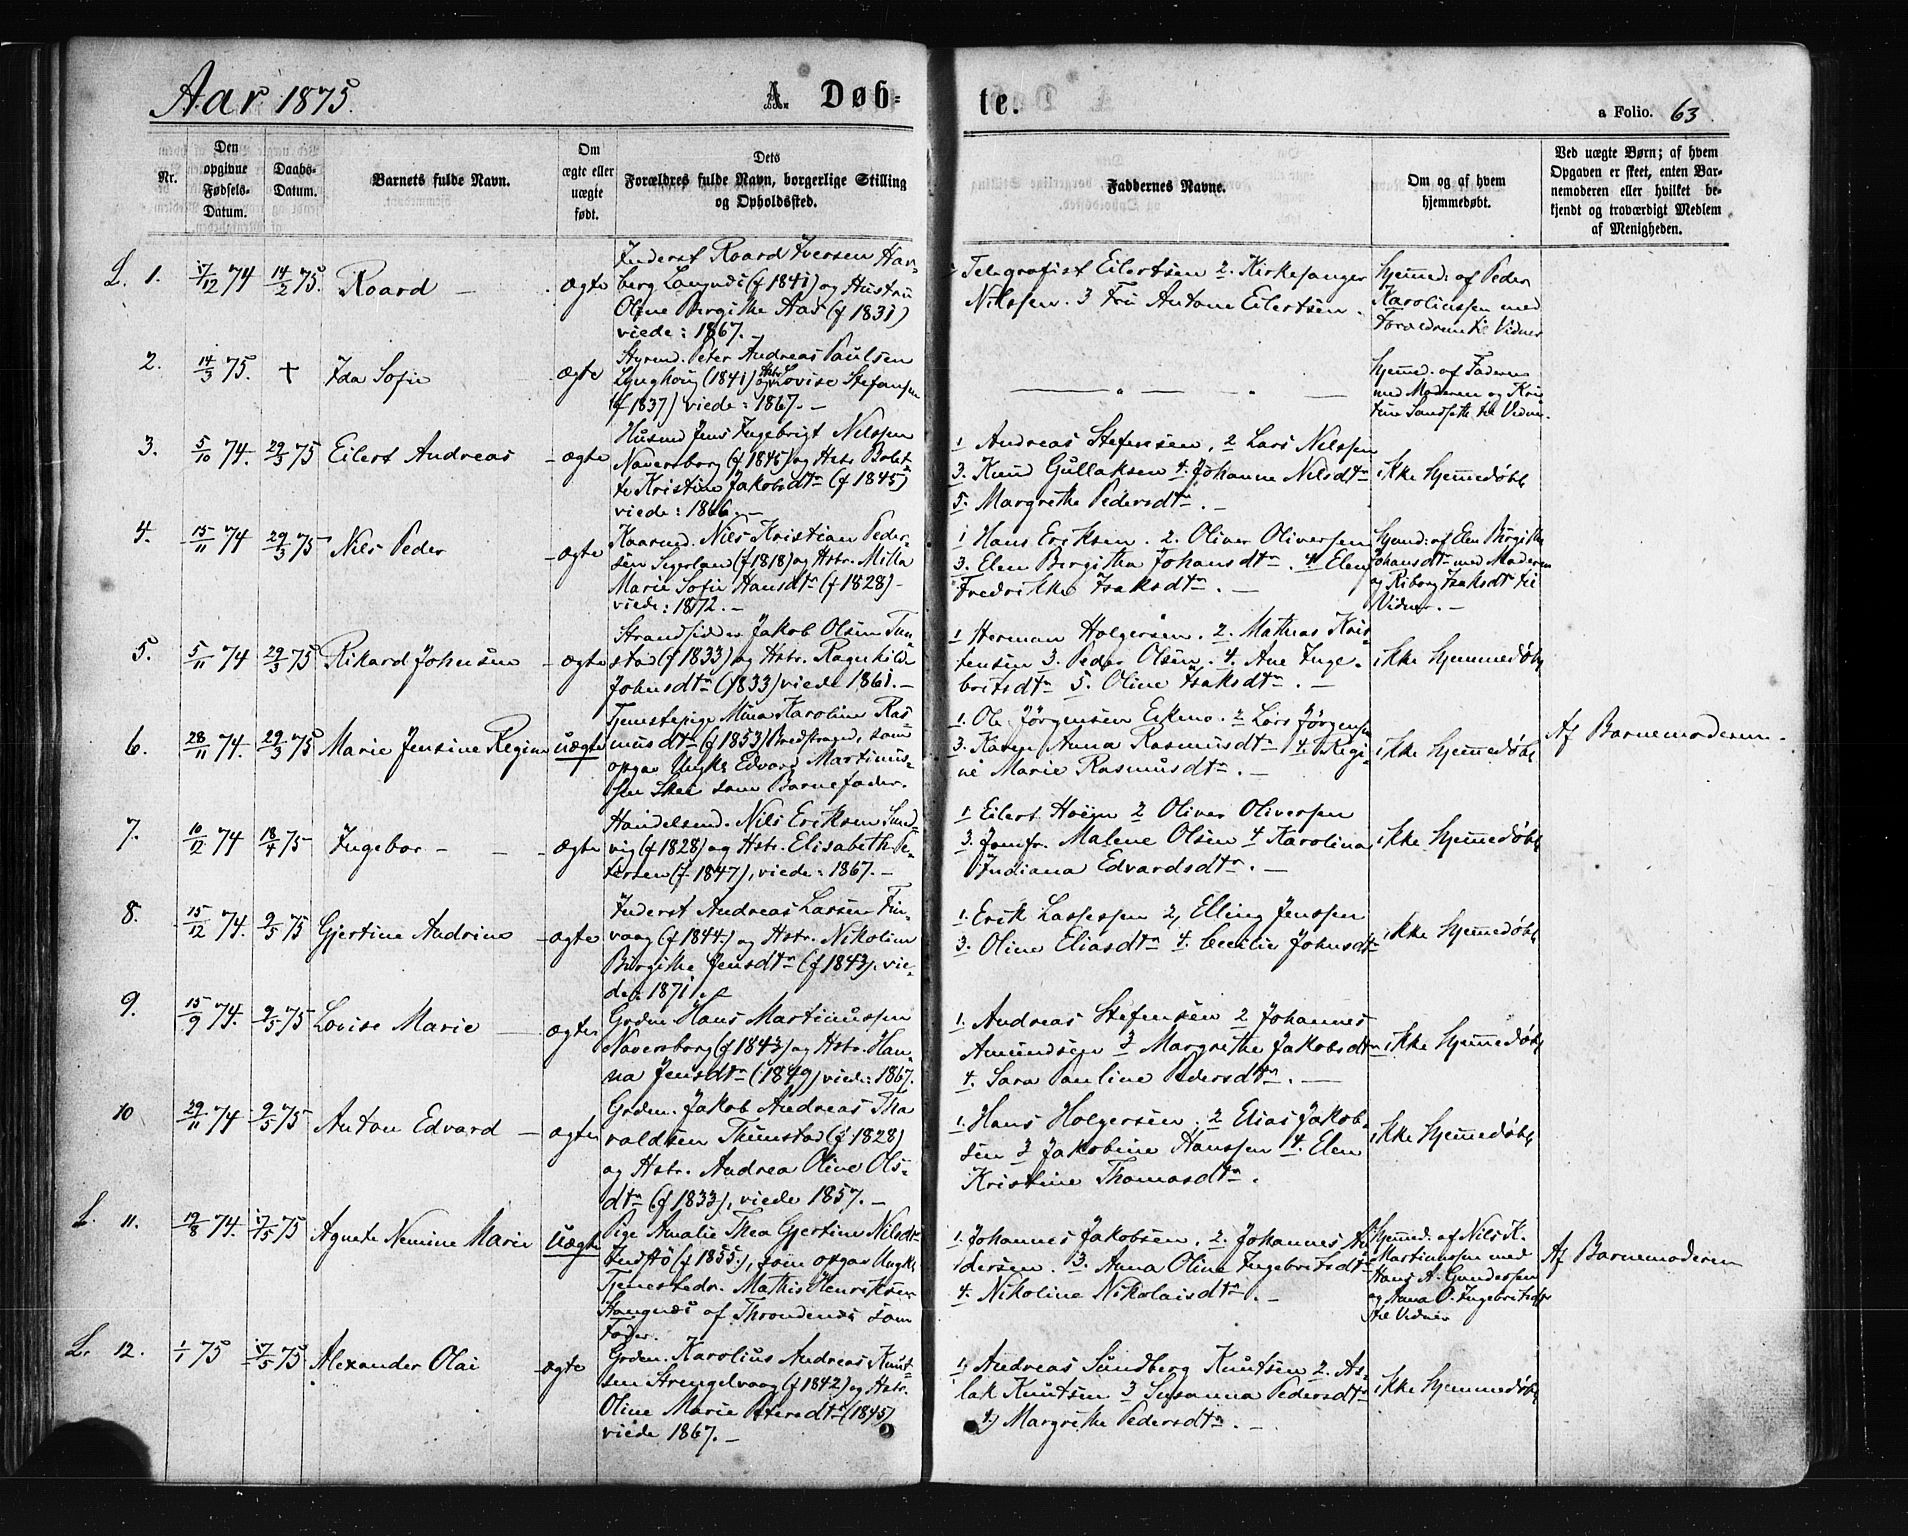 Aar 1875.
A. Døb-
te.
a Folio. 63.
Nr.
Den opgivne Fødsels-Datum.
Daabs-Datum.
Barnets fulde Navn.
Om ægte eller uægte født.
Dets Forældres fulde Navn, borgerlige Stilling og Opholdssted.
Faddernes Navne.
Om og af hvem hjemmedøbt.
Ved uægte Børn; af hvem Opgaven er skeet, enten Barnemoderen eller hvilket bekjendt og troværdigt Medlem af Menigheden.
L. 1. 17/12 74 14/2 75. Roard ægte
Inderst Roard Iversen Hav-
berg Langnæs (f 1841) og Hustru
Oline Bergithe Aas (f 1831)
viede: 1867.
Telegrafist Eilertsen 2. Kirkesanger
Nilssen. 3 Fru Antone Eilertsen.
Hjemmed. af Peder
Karoliussen med
Forældrene til Vidner
2. 14/3 75. + Ida Sofie ægte
Styrmd. Peter Andreas Paulsen
Lynghoug (1841) og Hstr. Lovise Stefansen
(f 1837) viede: 1867.
Hjemmed. af Faderen
med Moderen og Kri-
stine til Vidner.
3. 5/10 74. 29/3 75 Eilert Andreas ægte
Husmd Jens Ingebrigt Nilssen
Naversborg (f 1845) og Hstr. Bolet-
te Kristine Jakobsdtr (f 1845)
viede: 1866.
1 Andreas Stefensen, 2 Lars Nilssen
3. Knud Gullaksen 4. Johanne Nilsdtr
5. Margrethe Pedersdtr.
ikke Hjemmedøbt
4. 15/11 74 29/3 75 Nils Peder ægte
Kaarmd. Nils Kristian Peder-
sen Segerland (f 1818) og Hstr. Milla
Marie Sofie Hansdtr (f 1828)
viede: 1872.
1 Hans Eriksen. 2. Oliver Oliversen
3. Elen Bergitha Johansdtr. 4 Elen
Fredrikke Isaksdtr.
Hjemmd: af Elen Birgitha
Johansdtr med Moderen
og Riborg Isaksdt til
Vidner.
5. 5/11 74 29/3 75 Rikard Johensen ægte
Strandsidder Jakob Olsen Tun-
stad (f 1833) og Hstr. Ragnhild
Johnsdtr (1833) viede 1861.
1 Herman Holgersen. 2. Mathias Kris-
tensen 3. Peder Olsen. 4. Ane Inge-
britsdtr 5. Oline Isaksdtr.
ikke hjemmedøbt
6. 28/11 74. 29/3 75 Marie Jensine Regine uægte
Tjenestepige Mina Karoline Ras-
musdtr (f 1853) Bredstrand, som
opgav Ungk. Edvard Martinus-
sen Skei som Barnefader.
1. Ole Jørgensen Eskeno. 2 Lars Jørgensen
3. Karen Anna Rasmusdtr 4. Regi-
ne Marie Rasmusdtr.
ikke Hjemmedøbt
Af Barnemoderen.
7. 10/12 74 18/4 75 Ingebor ægte
Handelsmd. Nils Eriksen Sund-
vig (f 1828) og Hstr. Elisabeth Pe-
tersen (f 1847), viede: 1867.
1. Eilert Høyn 2 Oliver Oliversen
3. Jomfr. Malene Olsen 4 Karolina
Indiana Edvardsdtr.
ikke Hjemmedøbt
8. 15/12 74. 9/5 75 Gjertine Andrine ægte
Inderst Andreas Larsen Fin-
vaag (f 1844.) og Hstr. Nikoline
Birgithe Jensdtr (f 1843). vie-
de: 1871.
1. Erik Lassesen 2, Elling Jenssen
3. Oline Eliasdtr 4. Cecilie Johnsdtr
ikke Hjemmedøbt
9. 15/9 74. 9/5 75 Lovise Marie ægte
Grdm. Hans Martinussen
Naversborg (f 1843) og Hstr. Han-
na Jensdtr (1849) viede: 1867.
1. Andreas Stefensen 2 Johannes
Amundsen 3 Margrethe Jakobsdtr
4. Sara Pauline Pedersdtr.
ikke Hjemmedøbt
10 29/11 74 9/5 75 Anton Edvard ægte
Grdm. Jakob Andreas Tha
raldsen Thunstad (f 1828)
og Hstr. Andrea Olive Ols-
dtr (f 1833), viede 1857.
1. Hans Holgersen. 2 Elias Jakob-
sen 3 Jakobine Hanssen 4. Elen
Kristine Thomasdtr.
ikke Hjemmedøbt
L. 11. 19/8 74. 17/5 75 Agnete Nemine Marie uægte
Pige Amalie Thea Gjertine Nilsdtr
Indstø (f 1855.), som opgav Ungk.
Tjenestedr. Mathis Henriksen
Stangnæs af Throndenæs som
Fader.
1. Johannes Jakobsen. 2. Johannes An-
dersen. 3. Anna Oline Ingebritsdtr
4. Nikoline Nikolaisdtr.
Hjemmed. af Nils K.
Martinussen med
Hans A. Gundersen
og Anna O. Ingebritsdtr
til Vidner
Af Barnemoderen
L. 12. 1/1 75 17/5 75 Alexander Olai ægte
Grdm. Karolius Andreas Knut-
sen Strengelvaag (f 1842) og Hstr.
Oline Marie Petersdtr (1845)
viede 1867.
1, Andreas Sundberg Knutsen 2. As-
lak Knutsen 3 Susanna Pedersdtr
4) Margrethe Pedersdtr.
ikke Hjemmedøbt